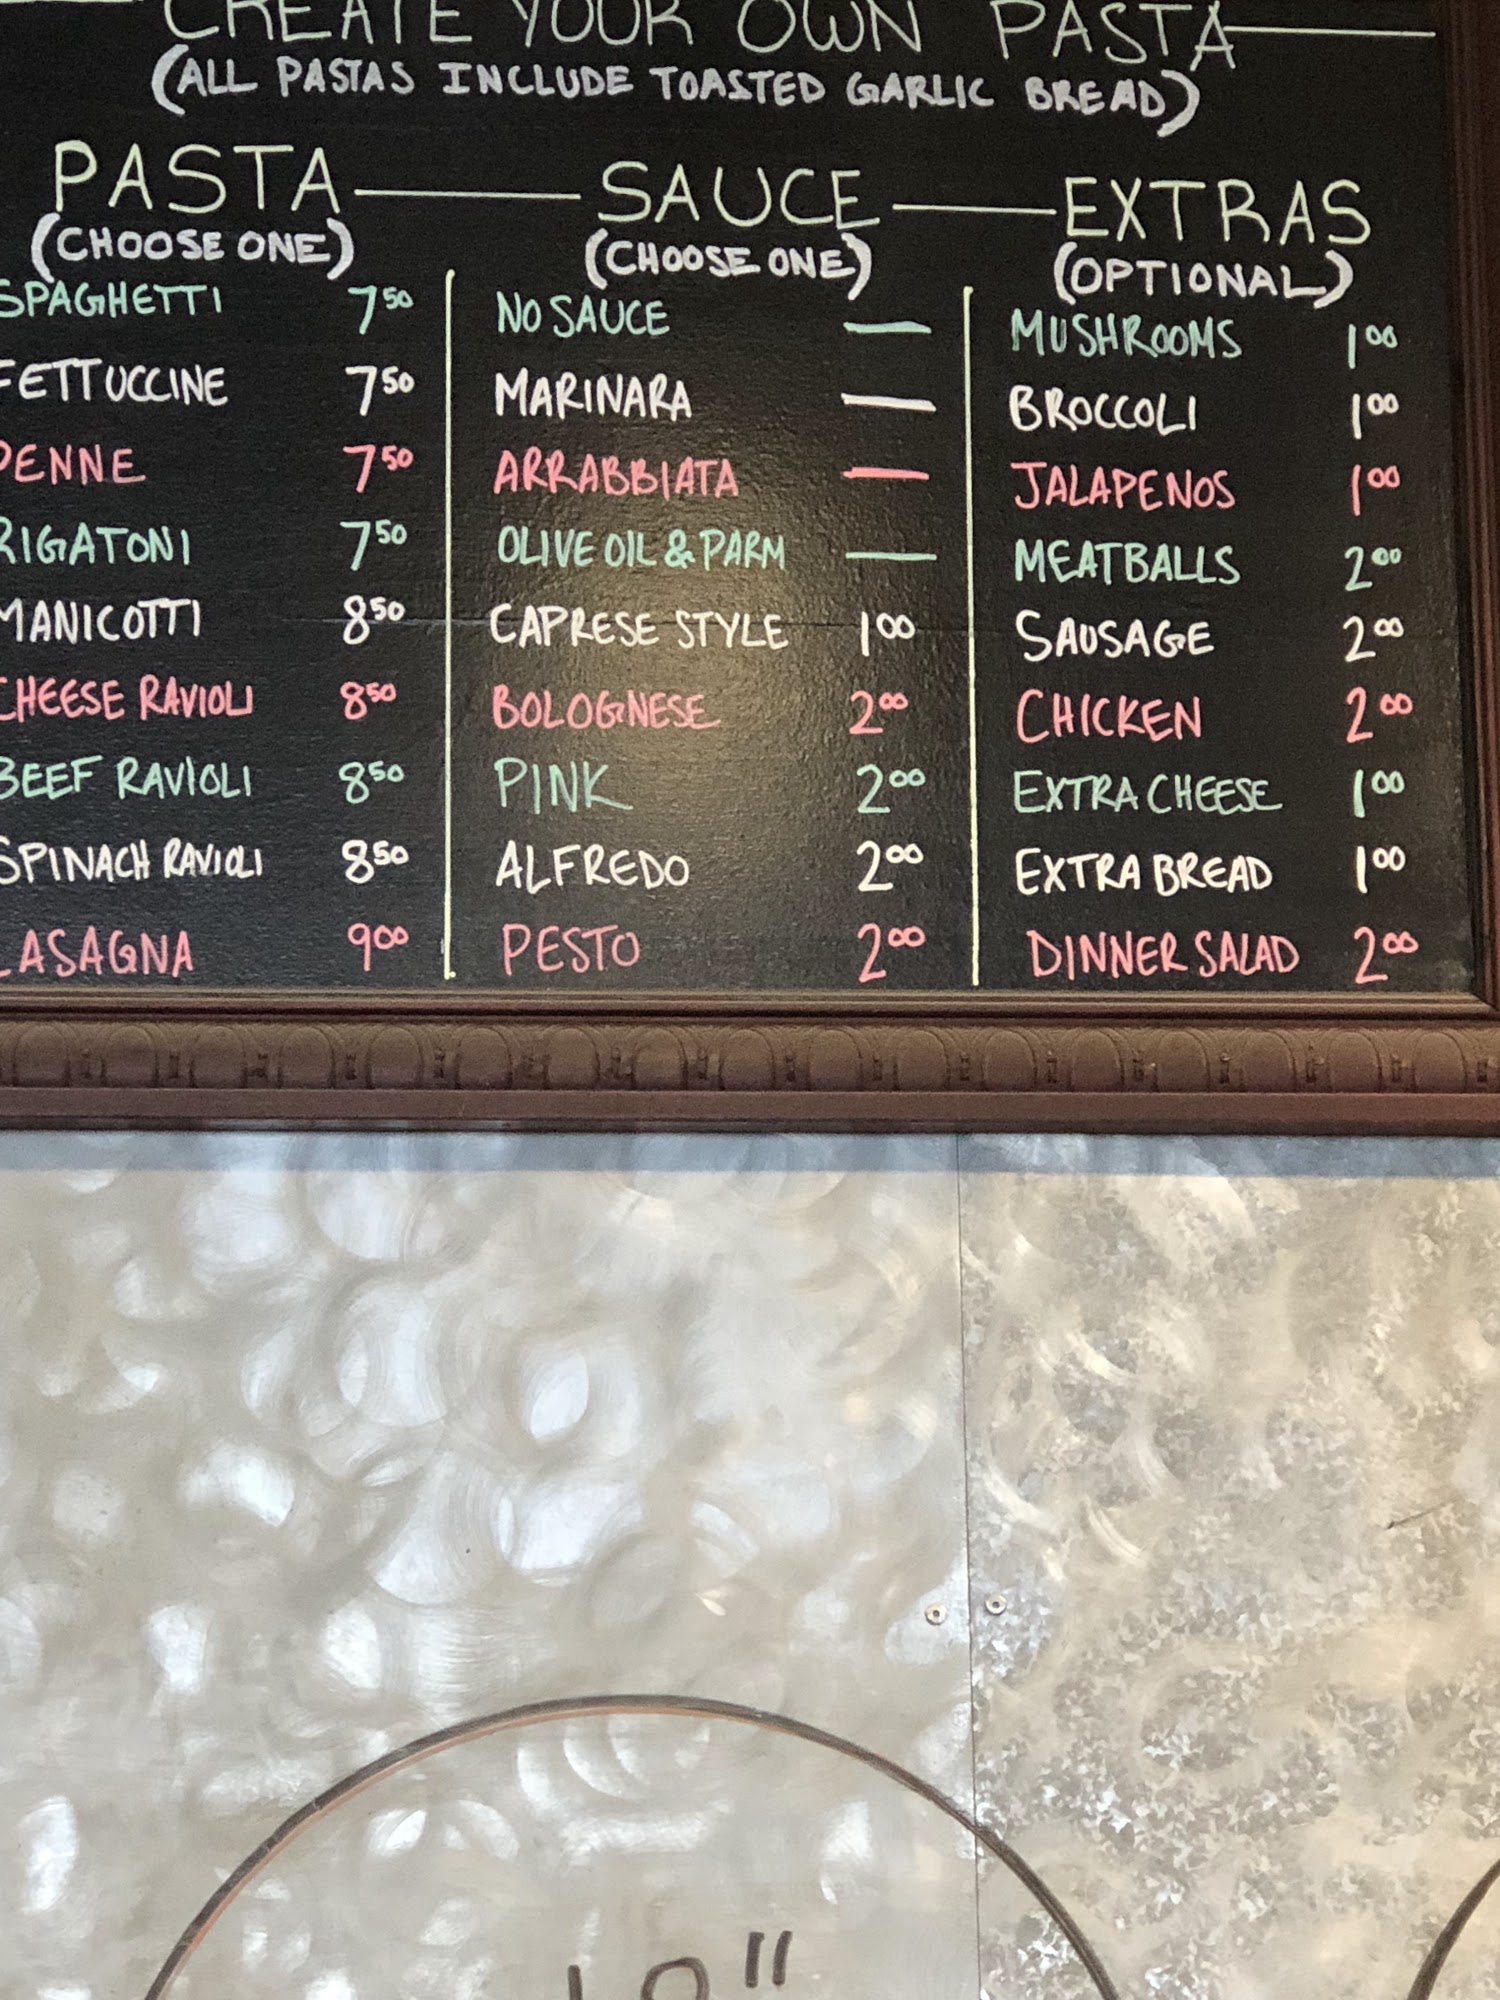 CREATE YOUR OWN PASTA
(ALL PASTAS INCLUDE TOASTED GARLIC BREAD)
PASTA SAUCE EXTRAS
(CHOOSE ONE) (CHOOSE ONE) (OPTIONAL)
SPAGHETTI 7 50
FETTUCCINE 7 50
PENNE 7 50
RIGATONI 7 50
MANICOTTI 8 50
CHEESE RAVIOLI 8 50
BEEF RAVIOLI 8 50
SPINACH RAVIOLI 8 50
LASAGNA 9 00
NO SAUCE —
MARINARA —
ARRABBIATA —
OLIVE OIL & PARM —
CAPRESE STYLE 1 00
BOLOGNESE 2 00
PINK 2 00
ALFREDO 2 00
PESTO 2 00
MUSHROOMS 1 00
BROCCOLI 1 00
JALAPENOS 1 00
MEATBALLS 2 00
SAUSAGE 2 00
CHICKEN 2 00
EXTRA CHEESE 1 00
EXTRA BREAD 1 00
DINNER SALAD 2 00